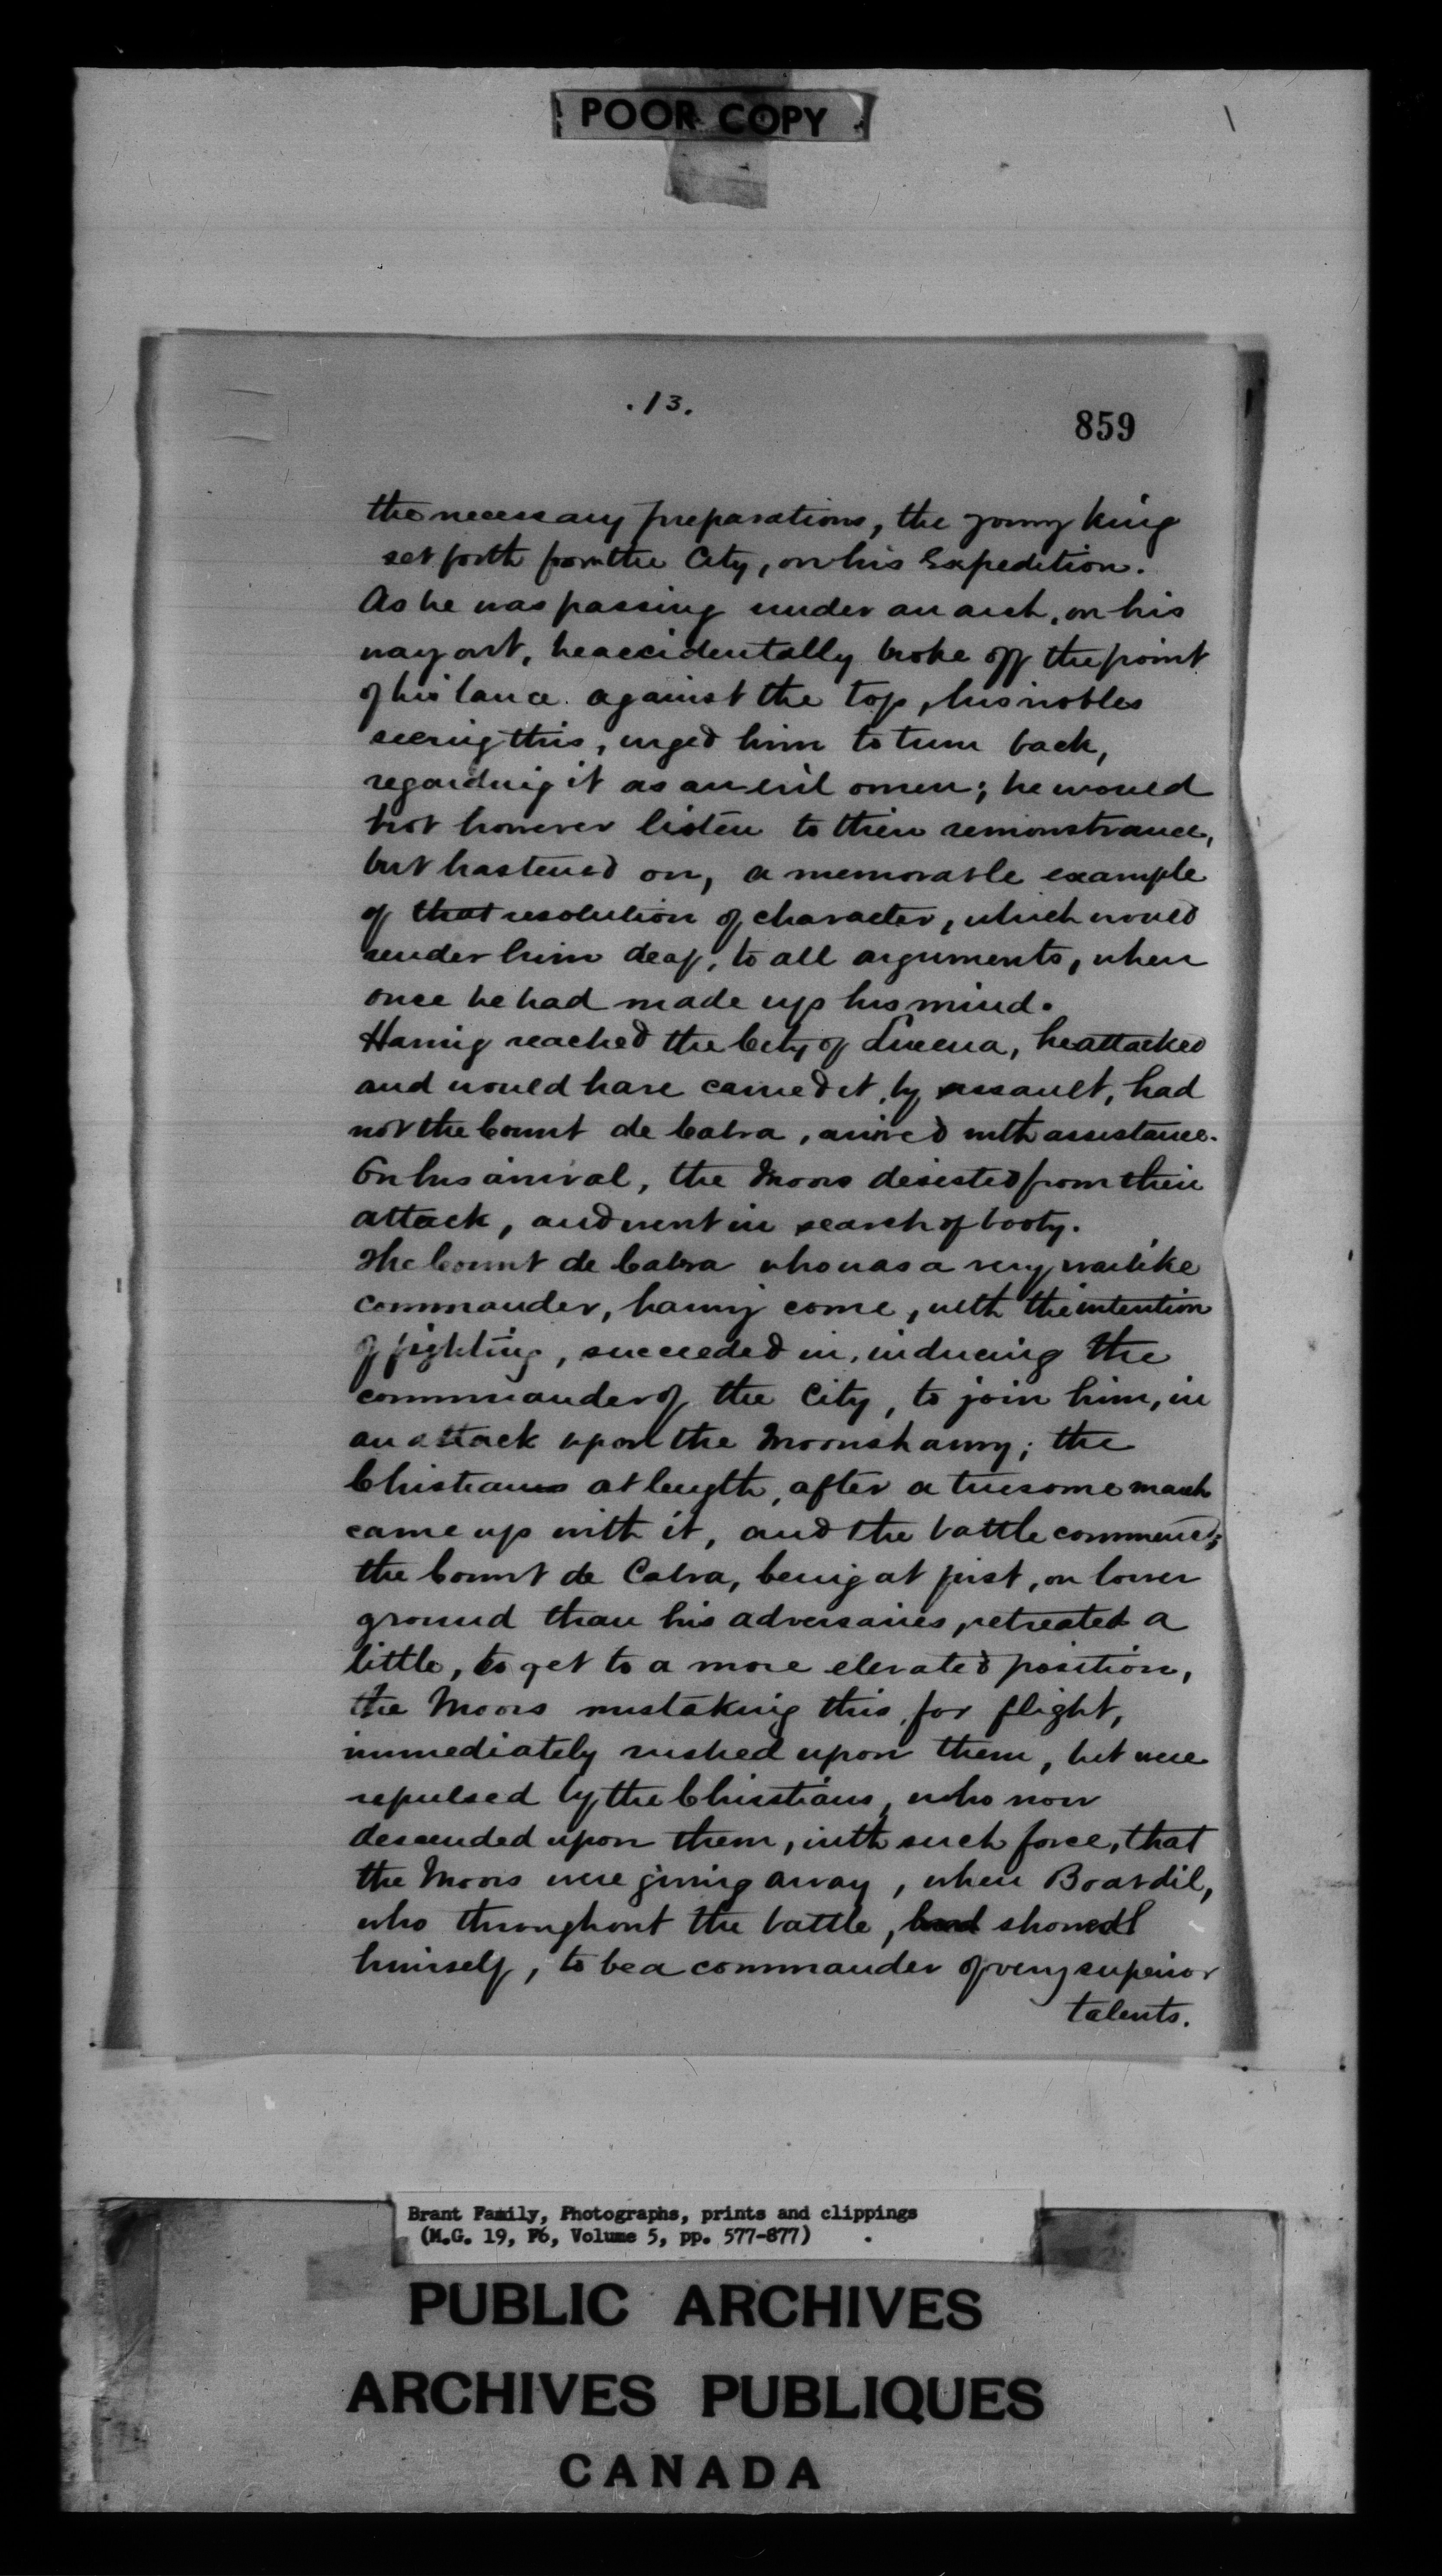 POOR COPY
. 13.
859
the necessary preparations, the young king
set forth from the City, on his Expedition.
As he was passing under an arch, on his
way out, he accidentally broke off the point
of his lance against the top, his nobles
seeing this, urged him to turn back,
regarding it as an evil omen; he would
not however listen to their remonstrance,
but hastened on, a memorable example
of that resolution of character, which would
render him deaf, to all arguments, when
once he had made up his mind.
Having reached the City of Lucena, he attacked
and would have carried it, by assault, had
not the Count de Cabra, arrived with assistance.
On his arrival, the Moors desisted from their
attack, and went in search of booty.
The Count de Cabra who was a very warlike
commander, having come, with the intention
of fighting, succeeded in, inducing the
commander of the City, to join him, in
an attack upon the Moorish army; the
Christians at length, after a tiresome march
came up with it, and the battle commenced;
the Count de Cabra, being at first, on lower
ground than his adversaries, retreated a
little, to get to a more elevated position,
the Moors mistaking this, for flight,
immediately rushed upon them, but were
repulsed by the Christians, who now
descended upon them, with such force, that
the Moors were giving away, when Boabdil,
who throughout the battle, had showed
himself, to be a commander of very superior
talents.
Brant Family, Photographs, prints and clippings
(M.G. 19, F6, Volume 5, pp. 577-877)
PUBLIC ARCHIVES
ARCHIVES PUBLIQUES
CANADA